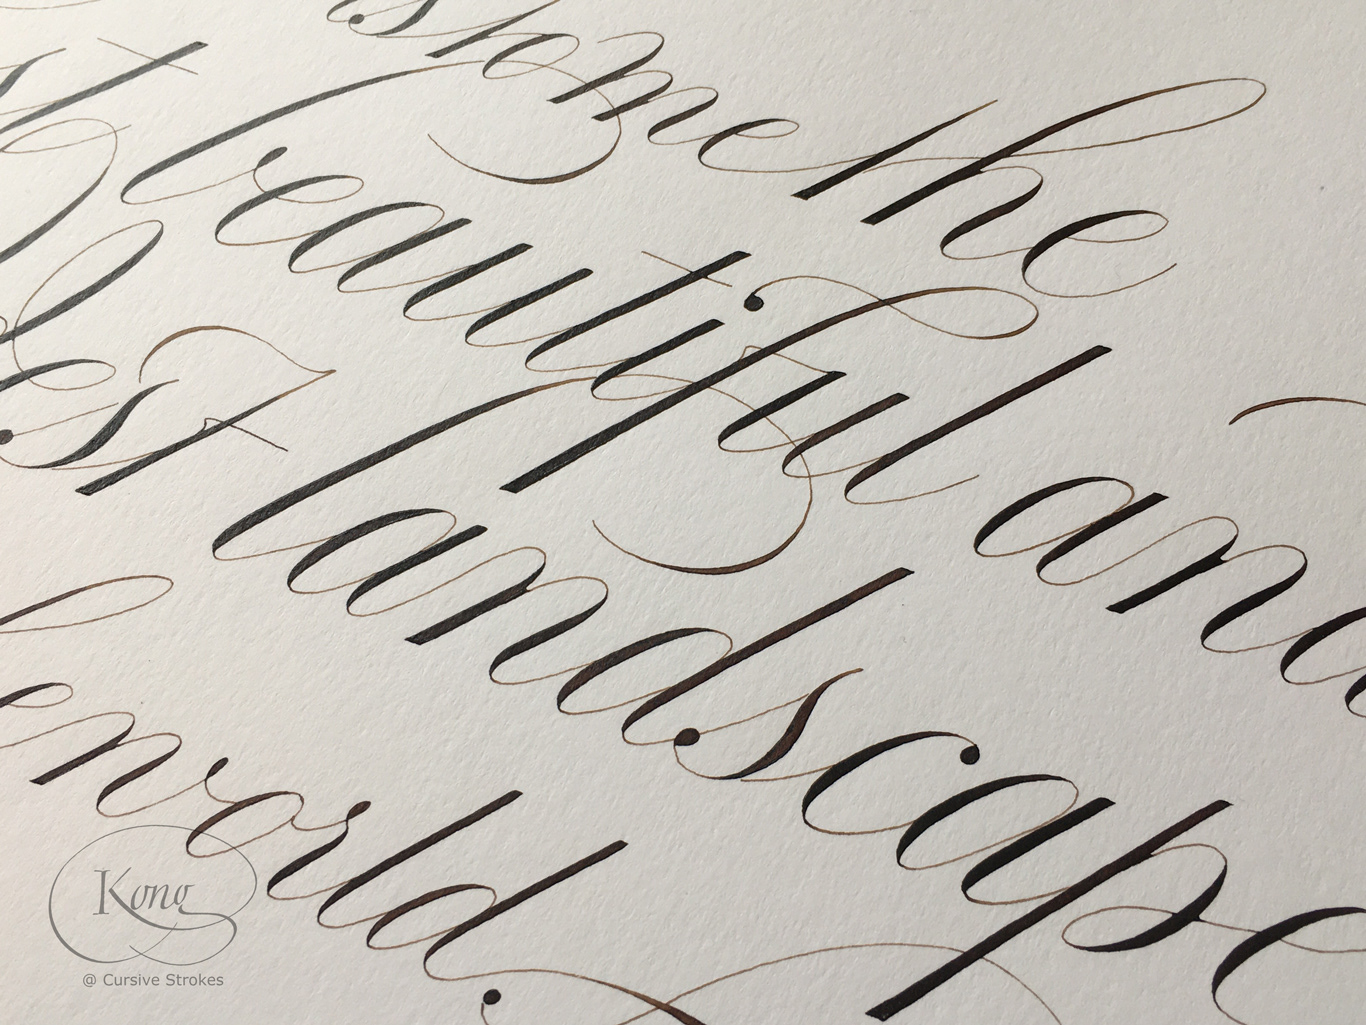 s to me the
st beautiful and
dest landscape
he world.
Kong
@ Cursive Strokes